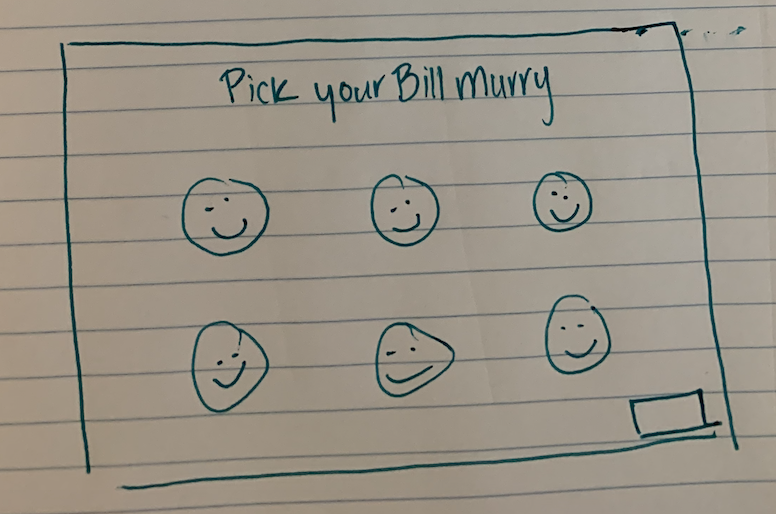 Pick your Bill Murry